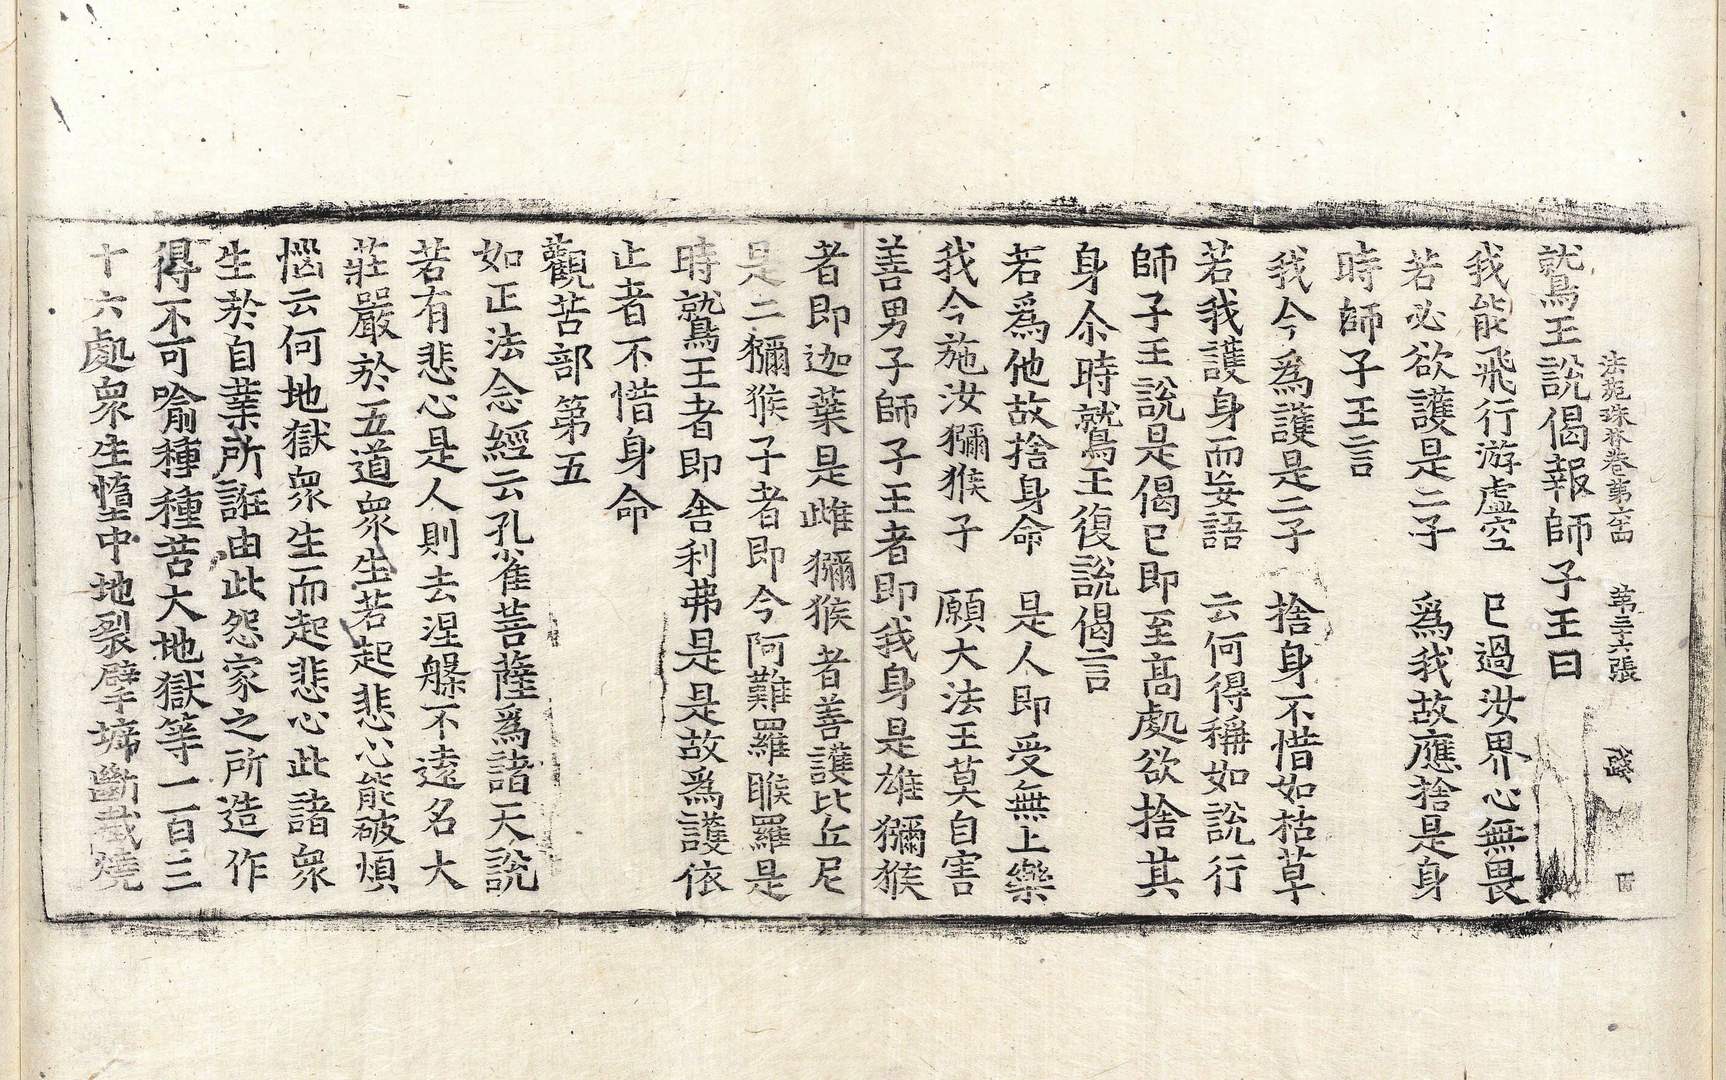 法苑珠林卷第六十四　第三十六張
鷲鳥王說偈報師子王曰
我能飛行游虛空　已過汝界心無畏
若必欲護是二子　爲我故應捨是身
時師子王言
我今爲護是二子　捨身不惜如枯草
若我護身而妄語　云何得稱如說行
師子王說是偈已即至高處欲捨其
身尒時鷲鳥王復說偈言
若爲他故捨身命　是人即受無上樂
我今施汝獼猴子　願大法王莫自害
善男子師子王者即我身是雄獼猴
者即迦葉是雌獼猴者善護比丘尼
是二獼猴子者即今阿難羅睺羅是
時鷲王者即舍利弗是是故爲護依
止者不惜身命
觀苦部第五
如正法念經云孔雀菩薩爲諸天說
若有悲心是人則去涅槃不遠名大
莊嚴於五道衆生若起悲心能破煩
惱云何地獄衆生而起悲心此諸衆
生於自業所誑由此怨家之所造作
得不可喻種種苦大地獄等一百三
十六處衆生墮中地裂擘㨖斷截燒